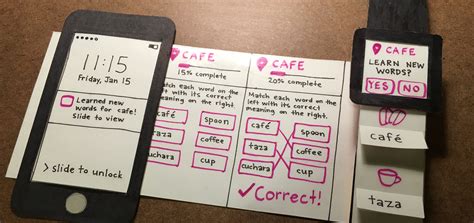 11:15
Friday, Jan 15
Learned new
words for cafe!
slide to view
> slide to unlock
CAFE
15% complete
Match each word on the
left with its correct
meaning on the right.
café
spoon
taza
coffee
cuchara
cup
CAFE
20% complete
Match each word on the
left with its correct
meaning on the right.
café
spoon
taza
coffee
cuchara
cup
✓Correct!
CAFE
LEARN NEW
WORDS?
YES NO
café
taza